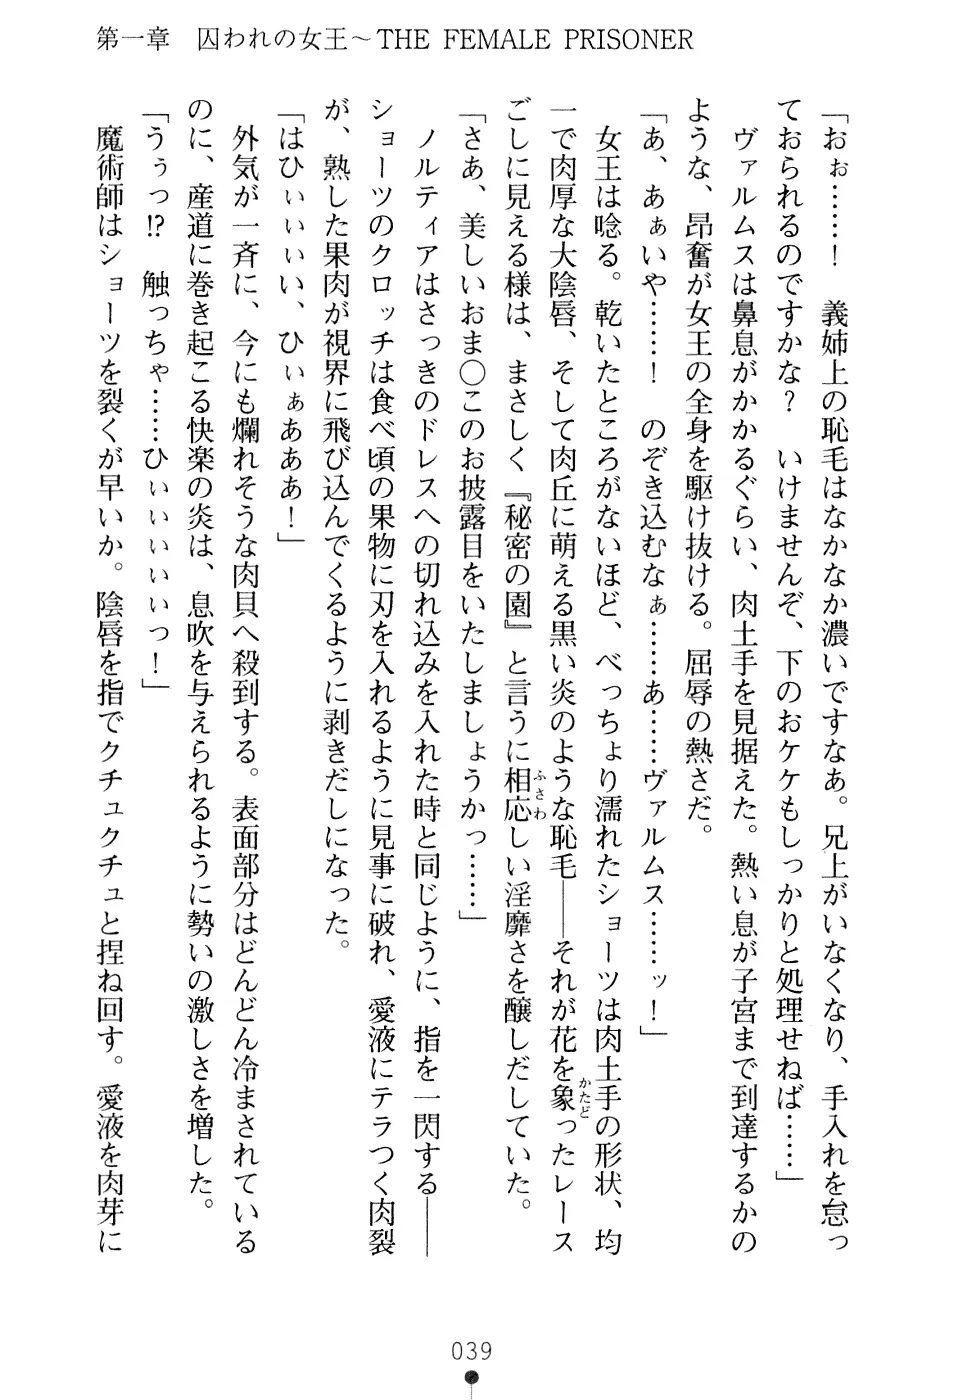 第一章　囚われの女王～THE FEMALE PRISONER
「おぉ……！　義姉上の恥毛はなかなか濃いですなあ。兄上がいなくなり、手入れを怠っ
ておられるのですかな？　いけませんぞ、下のおケケもしっかりと処理せねば……」
　ヴァルムスは鼻息がかかるぐらい、肉土手を見据えた。熱い息が子宮まで到達するかの
ような、昂奮が女王の全身を駆け抜ける。屈辱の熱さだ。
「あ、あぁいや……！　のぞき込むなぁ……あ……ヴァルムス……ッ！」
　女王は唸る。乾いたところがないほど、べっちょり濡れたショーツは肉土手の形状、均
一で肉厚な大陰唇、そして肉丘に萌える黒い炎のような恥毛――それが花を象ったレース
ごしに見える様は、まさしく『秘密の園』と言うに相応しい淫靡さを醸しだしていた。
「さあ、美しいおま〇このお披露目をいたしましょうかっ……」
　ノルティアはさっきのドレスへの切れ込みを入れた時と同じように、指を一閃する――
ショーツのクロッチは食べ頃の果物に刃を入れるように見事に破れ、愛液にテラつく肉裂
が、熟した果肉が視界に飛び込んでくるように剥きだしになった。
「はひぃぃぃい、ひぃぁあああ！」
　外気が一斉に、今にも爛れそうな肉貝へ殺到する。表面部分はどんどん冷まされている
のに、産道に巻き起こる快楽の炎は、息吹を与えられるように勢いの激しさを増した。
「うぅっ!?　触っちゃ……ひぃぃぃぃぃっ！」
　魔術師はショーツを裂くが早いか。陰唇を指でクチュクチュと捏ね回す。愛液を肉芽に
039